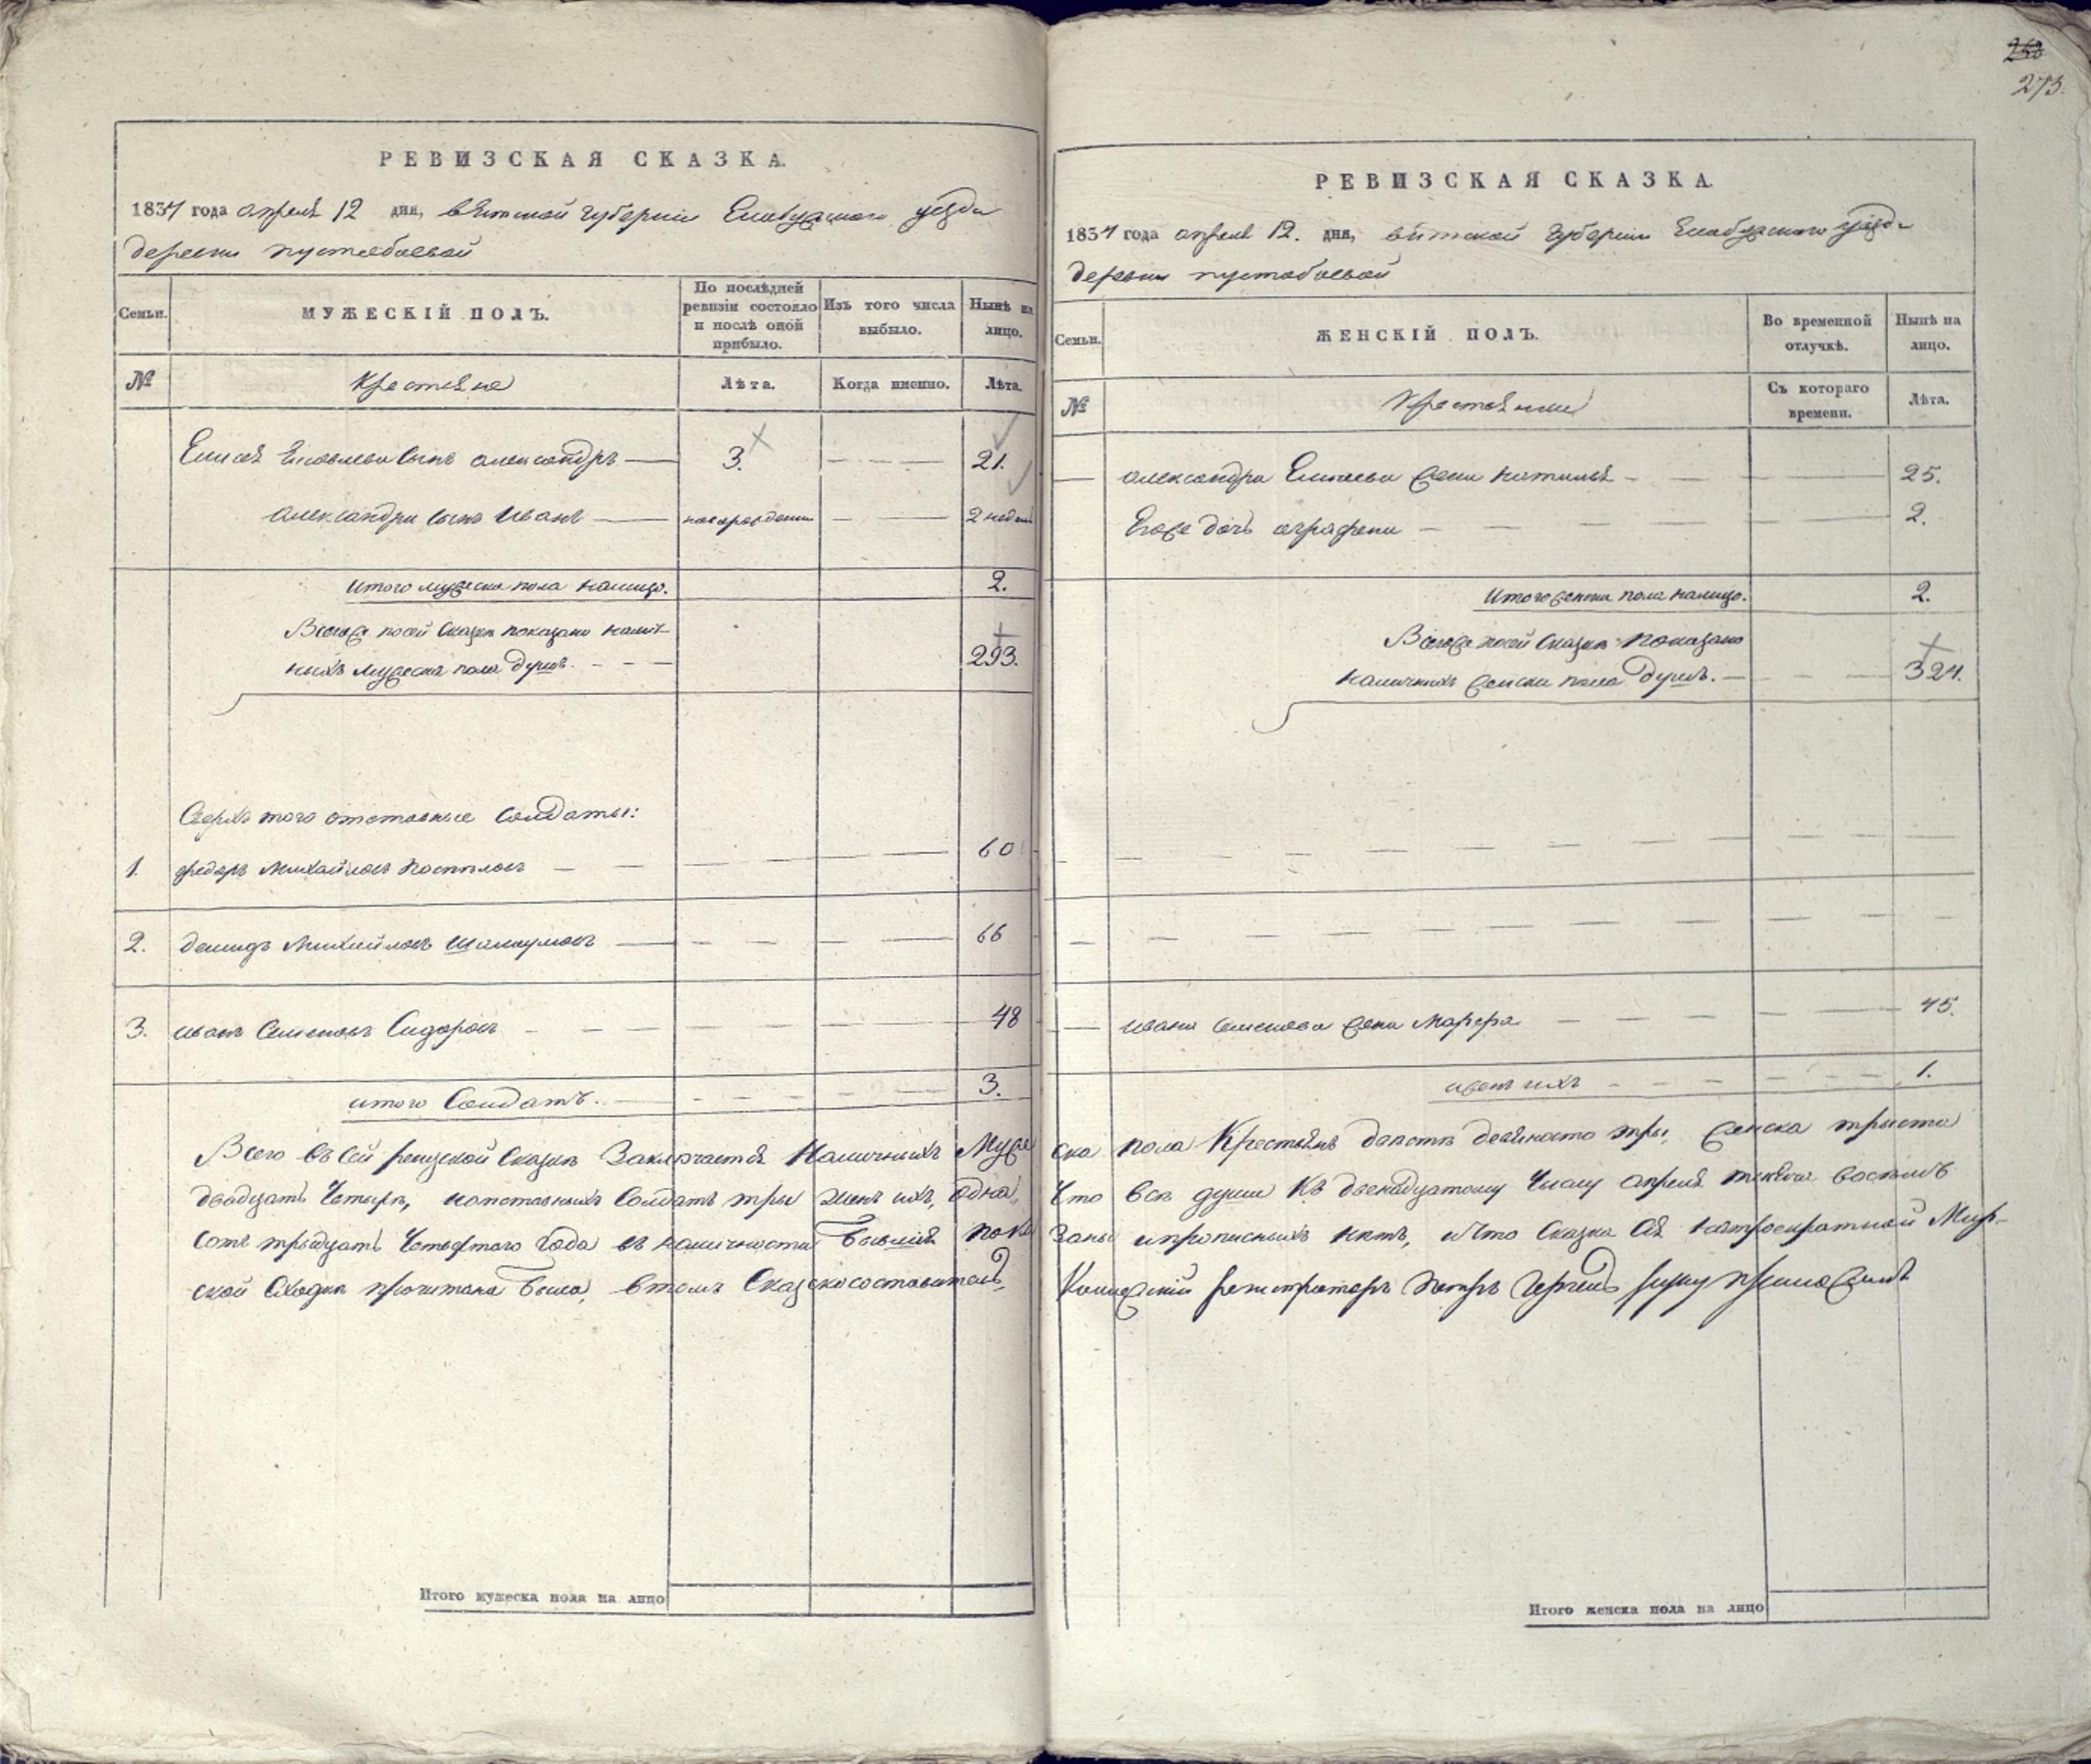 260
273.
РЕВИЗСКАЯ СКАЗКА.
1834 года апреля 12 дня, вятской губернии Елабускаго уезда
деревни пустобаевой
Семьи.
МУЖЕСКІЙ ПОЛЪ.
По послѣдней ревизіи состояло и послѣ оной прибыло.
Изъ того числа выбыло.
Нынѣ на лицо.
№
Крестьяне
Лѣта.
Когда имянно.
Лѣта.
Елисея Яковлева сынъ александръ 3. 21.
александра сынъ Иванъ новорожденн 2 недел
Итого мужеска пола налицо. 2.
Всегоже посей сказке показано налич-
ныхъ мужеска пола душъ. 293.
Сверхъ того отставные солдаты:
1. федоръ Михайловъ 60
2. демидъ Михайловъ 66
3. иванъ Семеновъ Сидоровъ 48
итого Солдатъ. 3.
РЕВИЗСКАЯ СКАЗКА.
1834 года апреля 12. дня, вятской губернии Елабускаго уезда
деревни пустобаевой
Семьи.
ЖЕНСКІЙ ПОЛЪ.
Во временной отлучкѣ.
Нынѣ на лицо.
№
Крестьянки
Съ котораго времени.
Лѣта.
александра Елисеева жена наталья 25.
Егоже дочь аграфена 2.
Итого женска пола налицо. 2.
Всегоже посей сказке показано
наличныхъ женска пола душъ. 324.
ивана семенова жена Марфа 45.
женъ ихъ 1.
Всего въ сей ревизской сказке заключается наличныхъ Муже ска пола Крестьянъ двести девяносто три, женска триста
двадцать четыре, иотставныхъ солдатъ три женъ ихъ, одна, Что все души къ двенадцатому числу апреля тысяча восемь
сотъ тридцать четвертого года въ наличности бывшия пока заны ипрописныхъ нетъ, ичто сказка сия натроекратной Мир-
ской сходке прочитана была, втомъ сказкосоставитель, Коллежский регистраторъ Петръ руку приложилъ
Итого мужеска пола на лицо
Итого женска пола на лицо